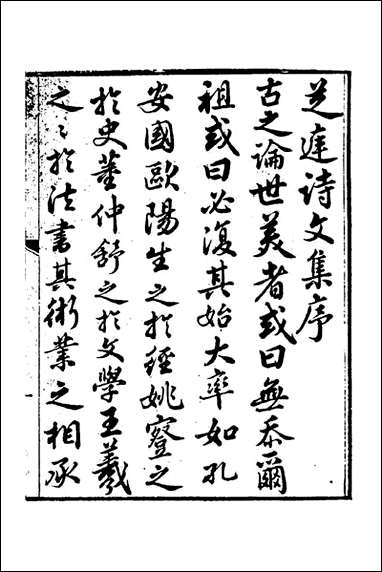 芝庭诗文集序
古之論世美者或曰無忝爾
祖或曰必復其始大率如孔
安國歐陽生之於經姚察之
於史董仲舒之於文學王羲
之之於法書其術業之相承